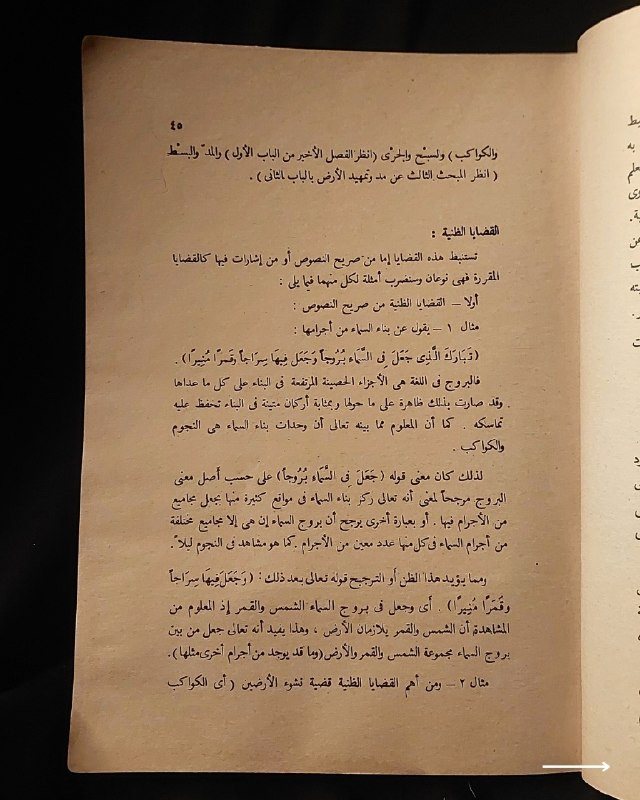 ٤٥
والكواكب) ولسبْح والجرْى (انظر الفصل الأخير من الباب الأول) والمدّ والبسْط
(انظر المبحث الثالث عن مد وتمهيد الأرض بالباب الثانى).
القضايا الظنية :
تستنبط هذه القضايا إما من صريح النصوص أو من إشارات فيها كالقضايا
المقررة فهى نوعان وسنضرب أمثلة لكل منهما فيما يلى :
أولا — القضايا الظنية من صريح النصوص :
مثال ١ — يقول عن بناء السماء من أجرامها :
(تَبَارَكَ الَّذِى جَعَلَ فِى السَّمَاءِ بُرُوجاً وَجَعَلَ فِيهَا سِرَاجاً وَقَمَرًا مُنِيرًا) .
فالبروج فى اللغة هى الأجزاء الحصينة المرتفعة فى البناء على كل ما عداها
وقد صارت بذلك ظاهرة على ما حولها وبمثابة أركان متينة فى البناء تحفظ عليه
تماسكه . كما أن المعلوم مما بينه تعالى أن وحدات بناء السماء هى النجوم
والكواكب .
لذلك كان معنى قوله (جَعَلَ فِى السَّمَاءِ بُرُوجاً) على حسب أصل معنى
البروج مرجحاً لمعنى أنه تعالى ركز بناء السماء فى مواقع كثيرة منها بجعل مجاميع
من الأجرام فيها . أو بعبارة أخرى يرجح أن بروج السماء إن هى إلا مجاميع مختلفة
من أجرام السماء فى كل منها عدد معين من الأجرام . كما هو مشاهد فى النجوم ليلاً .
ومما يؤيد هذا الظن أو الترجيح قوله تعالى بعد ذلك : (وَجَعَلَ فِيهَا سِرَاجاً
وقَمَرًا مُنِيرًا) . أى وجعل فى بروج السماء الشمس والقمر إذ المعلوم من
المشاهدة أن الشمس والقمر يلازمان الأرض ، وهذا يفيد أنه تعالى جعل من بين
بروج السماء مجموعة الشمس والقمر والأرض (وما قد يوجد من أجرام أخرى مثلها).
مثال ٢ — ومن أهم القضايا الظنية قضية نشوء الأرضين ( أى الكواكب